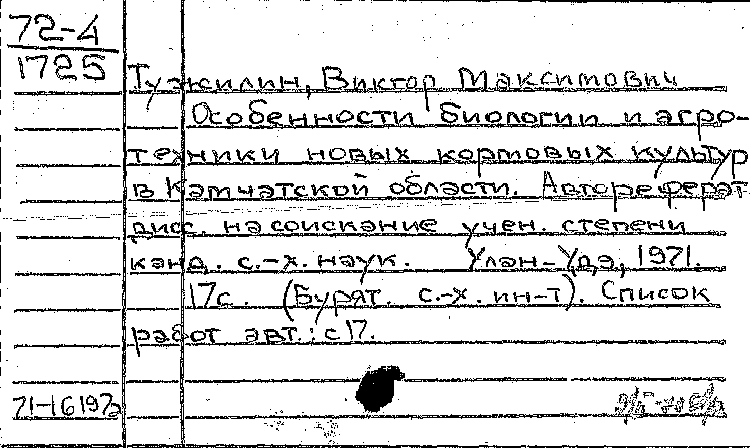 72-4
1725
Тужилин, Виктор Максимович
Особенности биологии и агро-
техники новых кормовых культур
в Камчатской области. Автореферат
дисс. на соискание учен. степени
канд. с.-х. наук. Улан-Удэ, 1971.
17с. (Бурят. с.-х. ин-т). Список
работ авт.: с 17.
71-16197а